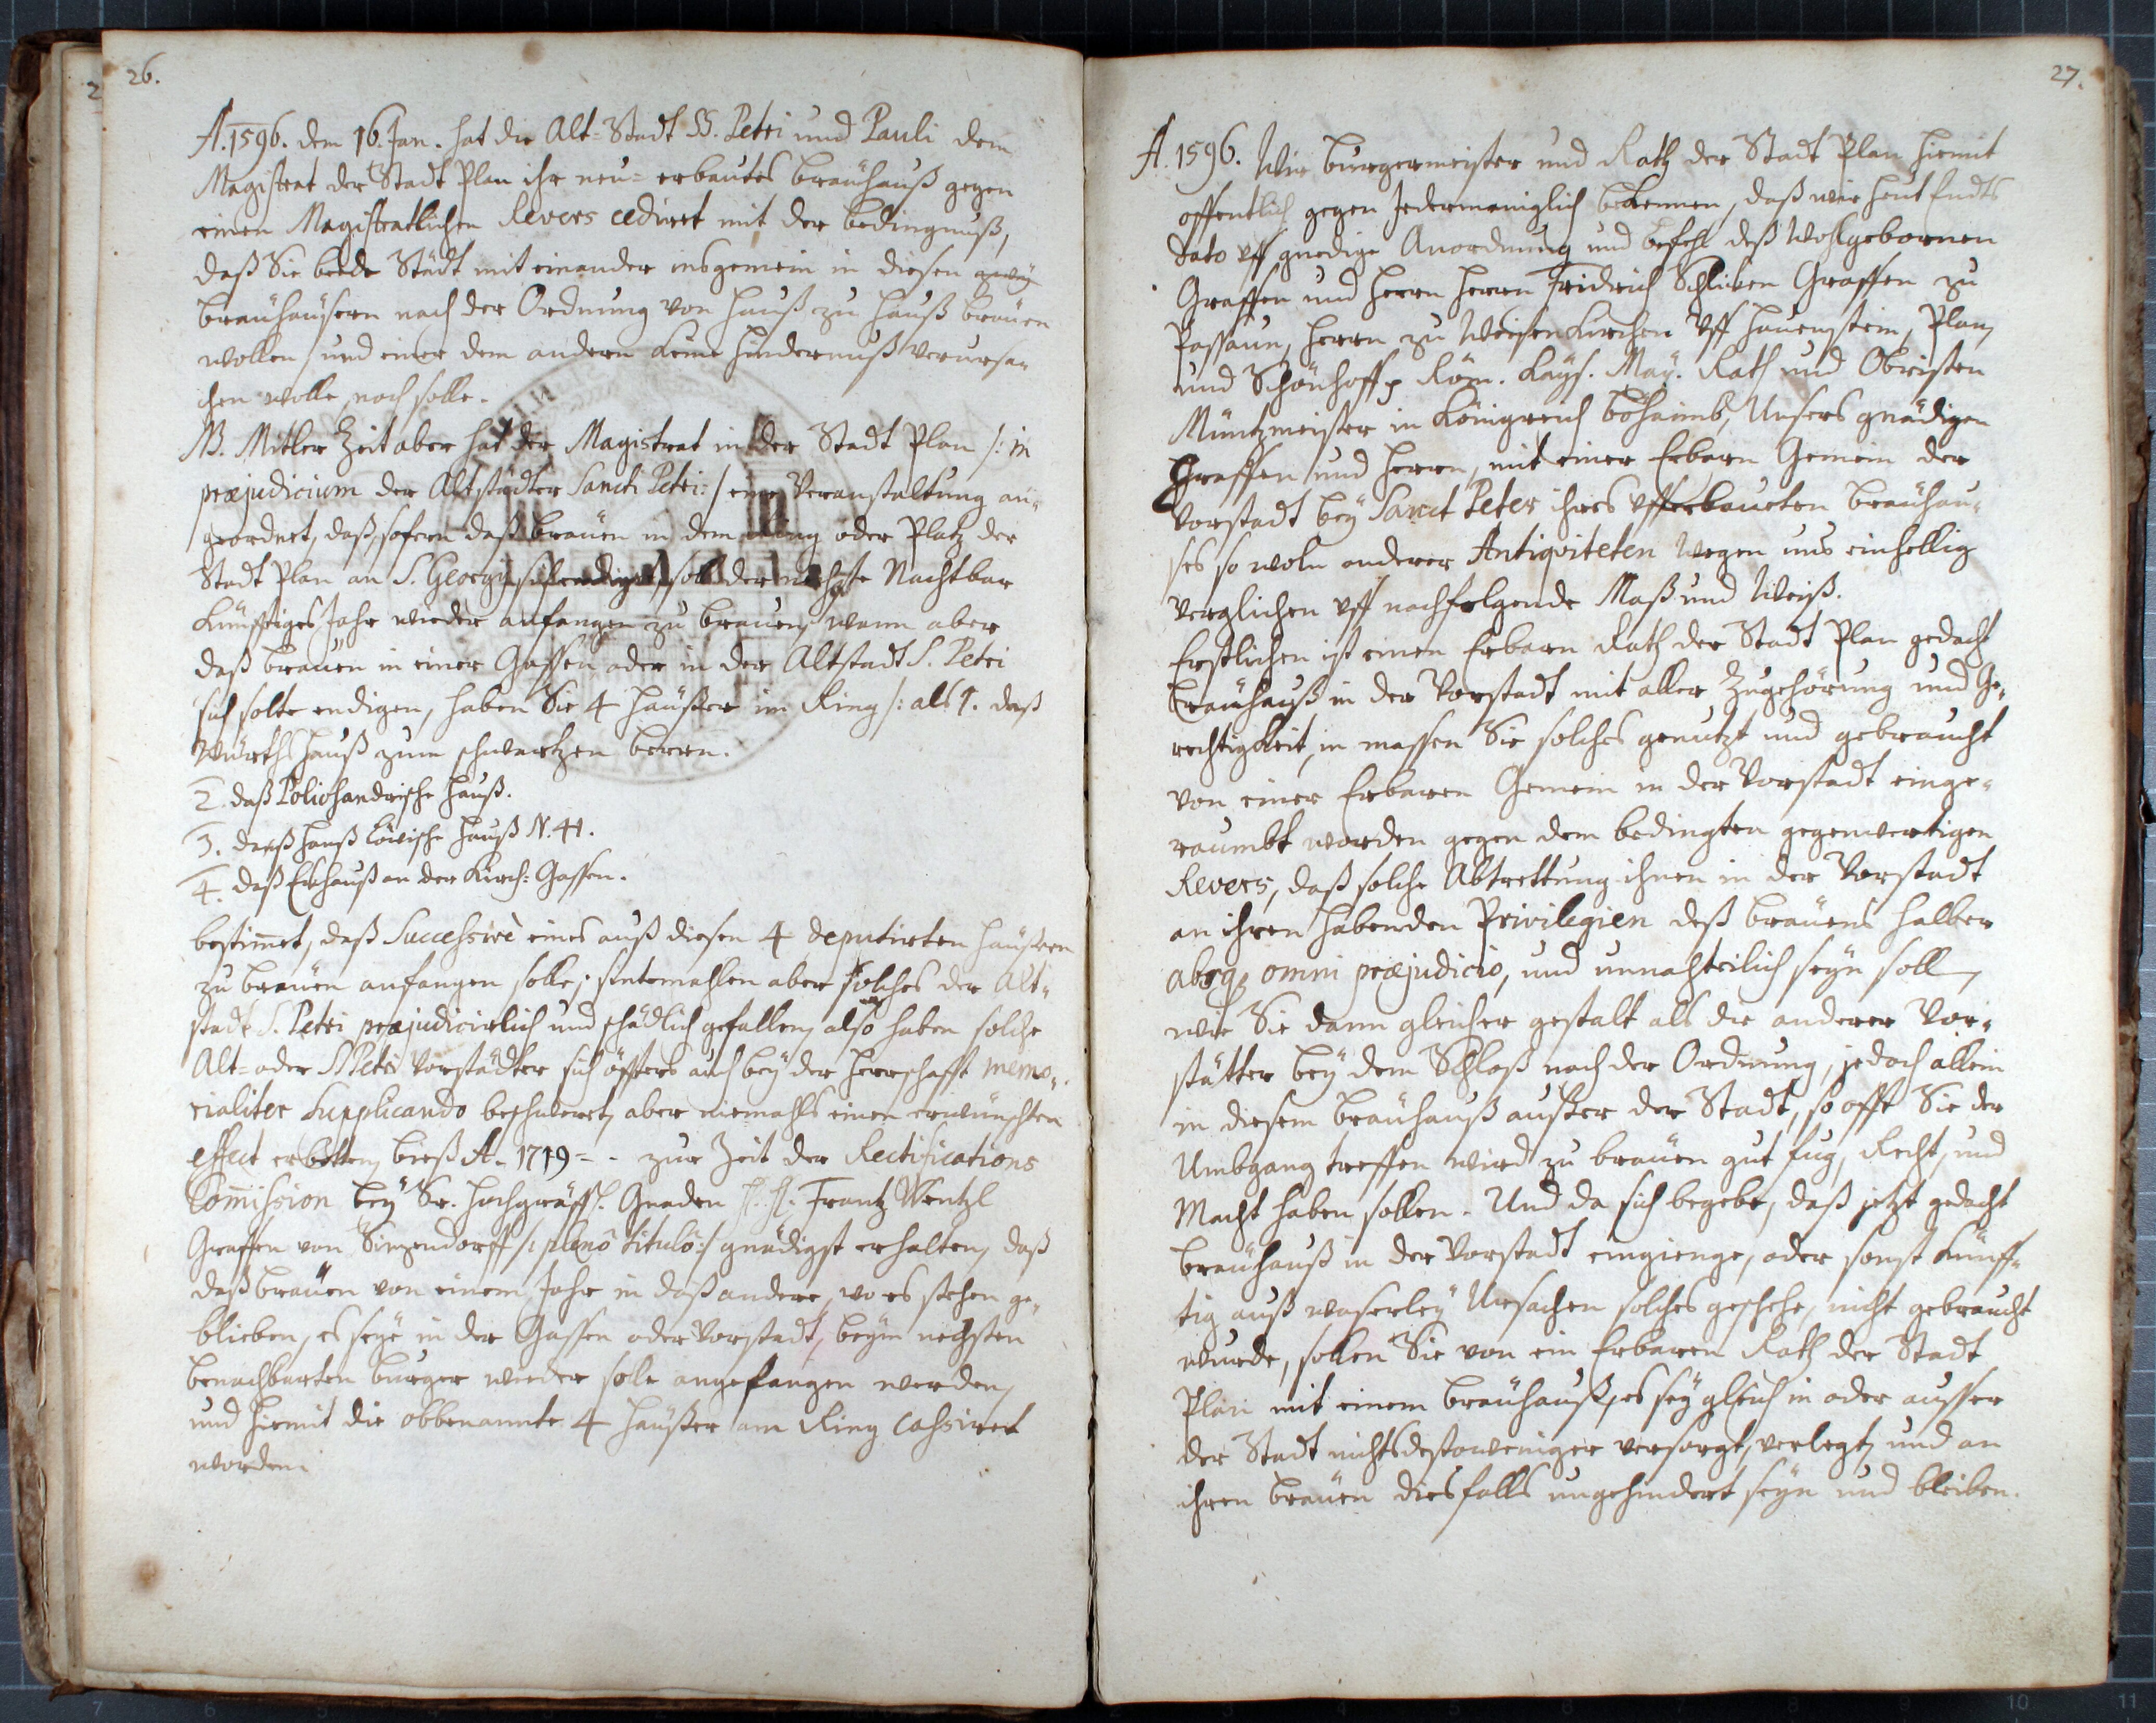 26.
A. 1596. dem 16. Jan. hat die Alt-Stadt SS. Petri und Pauli dem
Magistrat der Stadt Plan ihr neu-erbautes Breühauß gegen
einen Magistratlichen Revers cediret mit der bedingnuß,
daß Sie beede Städt mit einander insgemein in diesen zweÿ
breühäusern nach der Ordnung von Hauß zu Hauß breüen
wollen, und einer dem andern keine hindernuß verursa-
chen wolle, noch solle.
NB. Mitler Zeit aber hat der Magistrat in der Stadt Plan /: in
præjudicium der Altstädter Sancti Petri :/ eine Veranstaltung an-
geordnet, daß, sofern daß breüen in dem Ring oder Platz der
Stadt Plan an S. Georgi sich endiget, soll der nechste Nachtbar
künfftiges Jahr wieder anfangen zu breuen, wann aber
daß breüen in einer Gassen oder in der Altstadt S. Petri
sich solte endigen, haben Sie 4 häußer im Ring /: als 1. daß
Würthshauß zum schwartzen beern.
2. daß Poliohandrische Hauß.
3. daß Hanß Löwische Hauß N. 41.
4. daß Eckhauß an der Kirch-Gassen.
bestimet, daß Successivè eines auß diesen 4 deputirten häußern
zu breüen anfangen solle; sintemahlen aber solches der Alt-
stadt S. Petri præjudicirlich und schädlich gefallen, also haben solche
Alt- oder S Petri Vorstädter sich öffters auch beÿ der Herrschafft memo-
rialiter supplicando beschweret, aber niemahls einen erwünschten
effect erbetten, bieß A. 1719 = - zur Zeit der Rectifications
Commission beÿ Sr. Hochgräffl. Gnaden H. H. Frantz Wentzl
Graffen von Sinzendorff /: plenô titulô :/ gnädigst erhalten, daß
daß breüen von einem Jahr in daß andere, wo es stehen ge-
blieben, es seÿe in der Gassen oder Vorstadt, beÿm nechsten
benachbarten burger wieder solle angefangen werden,
und hiemit die obbenannte 4 häußer am Ring cassiret
worden.
27.
A. 1596. Wir burgermeister und Rath der Stadt Plan hiemit
offentlich gegen Jedermeniglich bekennen, daß wir heut Endts
dato vff gnedige Anordnung und befehl deß Wohlgebornen
Graffen und Herrn Herrn Fridrich Schlicken Graffen zu
Passaun, Herrn zu Weisenkirchen vff Hauenstein, Plan,
und Schönhoff p Röm. Kaÿs. Maÿ. Rath und Obristen
Müntzmeister in Königreich böhaimb, Unsers gnädigen
Graffen und Herrn, mit einer Erbarn Gemein der
Vorstadt beÿ Sanct Peter ihres vfferbaueten breühau-
ses so woln anderer Antiqviteten wegen uns einhellig
verglichen vff nachfolgende Maß und Weiß.
Erstlichen ist einen Erbarn Rath der Stadt Plan gedacht
breühauß in der Vorstadt mit aller Zugehörung und Ge-
rechtigkeit, in massen Sie solches genutzt und gebraucht
von einer Erbaren Gemein in der Vorstadt einge-
raumbt worden gegen dem bedingten gegenwertigen
Revers, daß solche Abtrettung ihnen in der Vorstadt
an ihren habenden Privilegien deß breüens halber
absq. omni præjudicio, und unnachteilich seÿn soll,
wie Sie dann gleicher gestalt als die anderer Vor-
stätter beÿ dem Schloß nach der Ordnung, jedoch allein
in diesem breühauß ausser der Stadt, so offt Sie der
Umbgang treffen wird zu breüen gut fug, Recht, und
Macht haben sollen. Und da sich begebe, daß jetzt gedacht
breühauß in der Vorstadt eingienge, oder sonst künff-
tig auß waserleÿ Ursachen solches geschehe, nicht gebraucht
wurde, sollen Sie von ein Erbaren Rath der Stadt
Plan mit einem breühauß, es seÿ gleich in oder ausser
der Stadt nichtsdestoweniger versorgt, verlegt, und an
ihren breüen diesfalls ungehindert seÿn und bleiben.